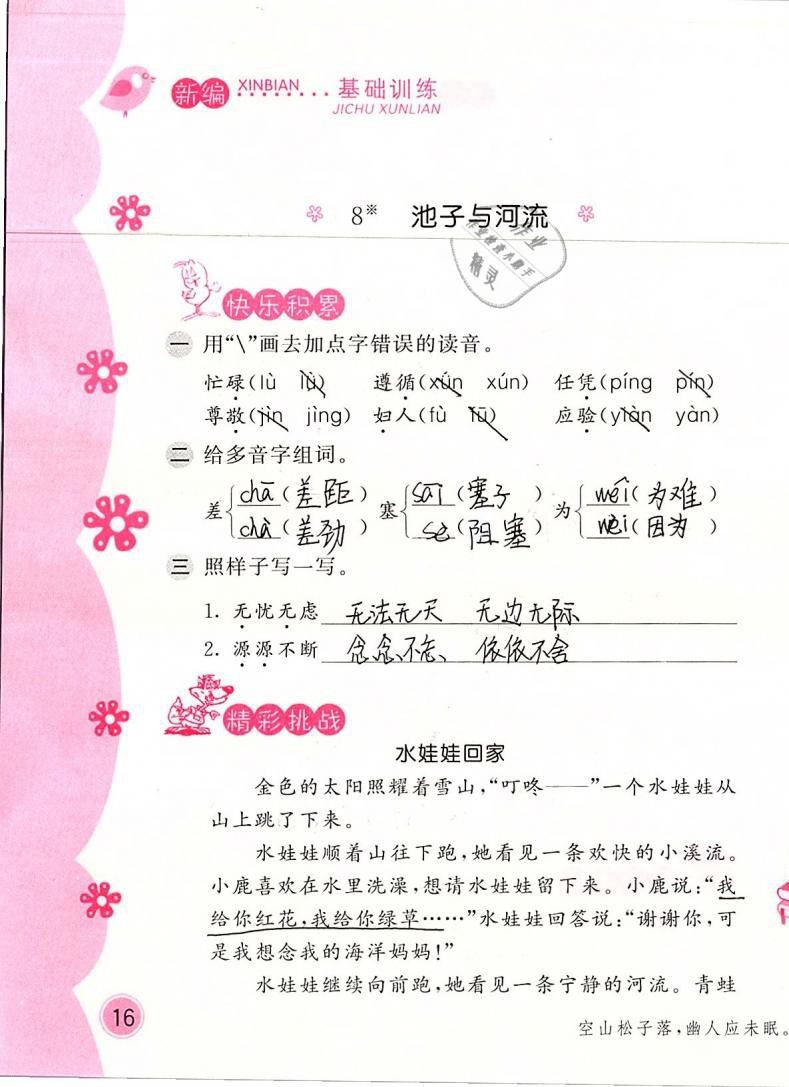 新编 XINBIAN ········ 基础训练
JICHU XUNLIAN
8※ 池子与河流
作业
作业检查小助手
精灵
快乐积累
一 用“\”画去加点字错误的读音。
忙碌(lù lǜ) 遵循(xún xún) 任凭(píng pín)
尊敬(jìn jìng) 妇人(fù fū) 应验(yiàn yàn)
二 给多音字组词。
差{ chā(差距) 塞{ sāi(塞子) 为{ wéi(为难)
chà(差劲) sè(阻塞) wèi(因为)
三 照样子写一写。
1. 无忧无虑 无法无天 无边无际
2. 源源不断 念念不忘、 依依不舍
精彩挑战
水娃娃回家
金色的太阳照耀着雪山,“叮咚——”一个水娃娃从
山上跳了下来。
水娃娃顺着山往下跑,她看见一条欢快的小溪流。
小鹿喜欢在水里洗澡,想请水娃娃留下来。小鹿说:“我
给你红花,我给你绿草……”水娃娃回答说:“谢谢你,可
是我想念我的海洋妈妈!”
水娃娃继续向前跑,她看见一条宁静的河流。青蛙
16
空山松子落,幽人应未眠。